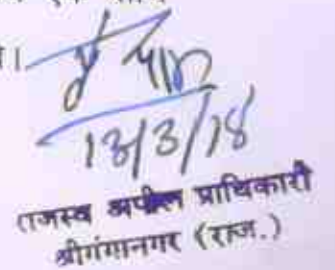 ।
13/3/18
राजस्व अपील प्राधिकारी
श्रीगंगानगर (राज.)